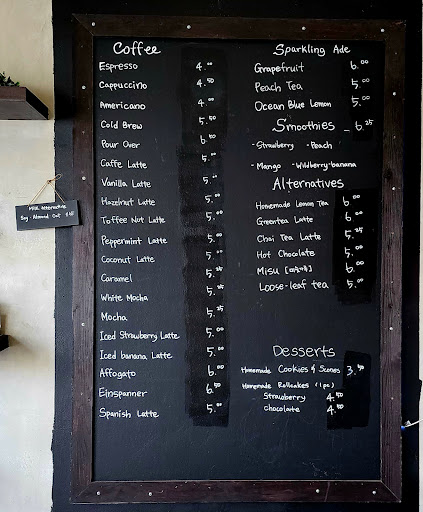 Coffee
Espresso 4.00
Cappuccino 4.50
Americano 4.00
Cold Brew 5.50
Pour Over 6.50
Caffe Latte 5.00
Vanilla Latte 5.00
Hazelnut Latte 5.00
Toffee Nut Latte 5.00
Peppermint Latte 5.00
Coconut Latte 5.00
Caramel 5.25
White Mocha 5.25
Mocha 5.25
Iced Strawberry Latte 5.00
Iced banana Latte 5.00
Affogato 6.00
Einspanner 6.50
Spanish Latte 5.00
Sparkling Ade
Grapefruit 6.00
Peach Tea 5.00
Ocean Blue Lemon 5.00
Smoothies - 6.25
- Strawberry - Peach
- Mango - Wildberry-banana
Alternatives
Homemade Lemon Tea 6.00
Greentea Latte 6.00
Chai Tea Latte 5.25
Hot Chocolate 5.00
Misu 6.00
Loose-leaf tea 5.00
Desserts
Homemade Cookies & Scones 3.50
Homemade Rollcakes (1pc)
Strawberry 4.50
Chocolate 4.50
Milk Alternative
Soy. Almond Oat